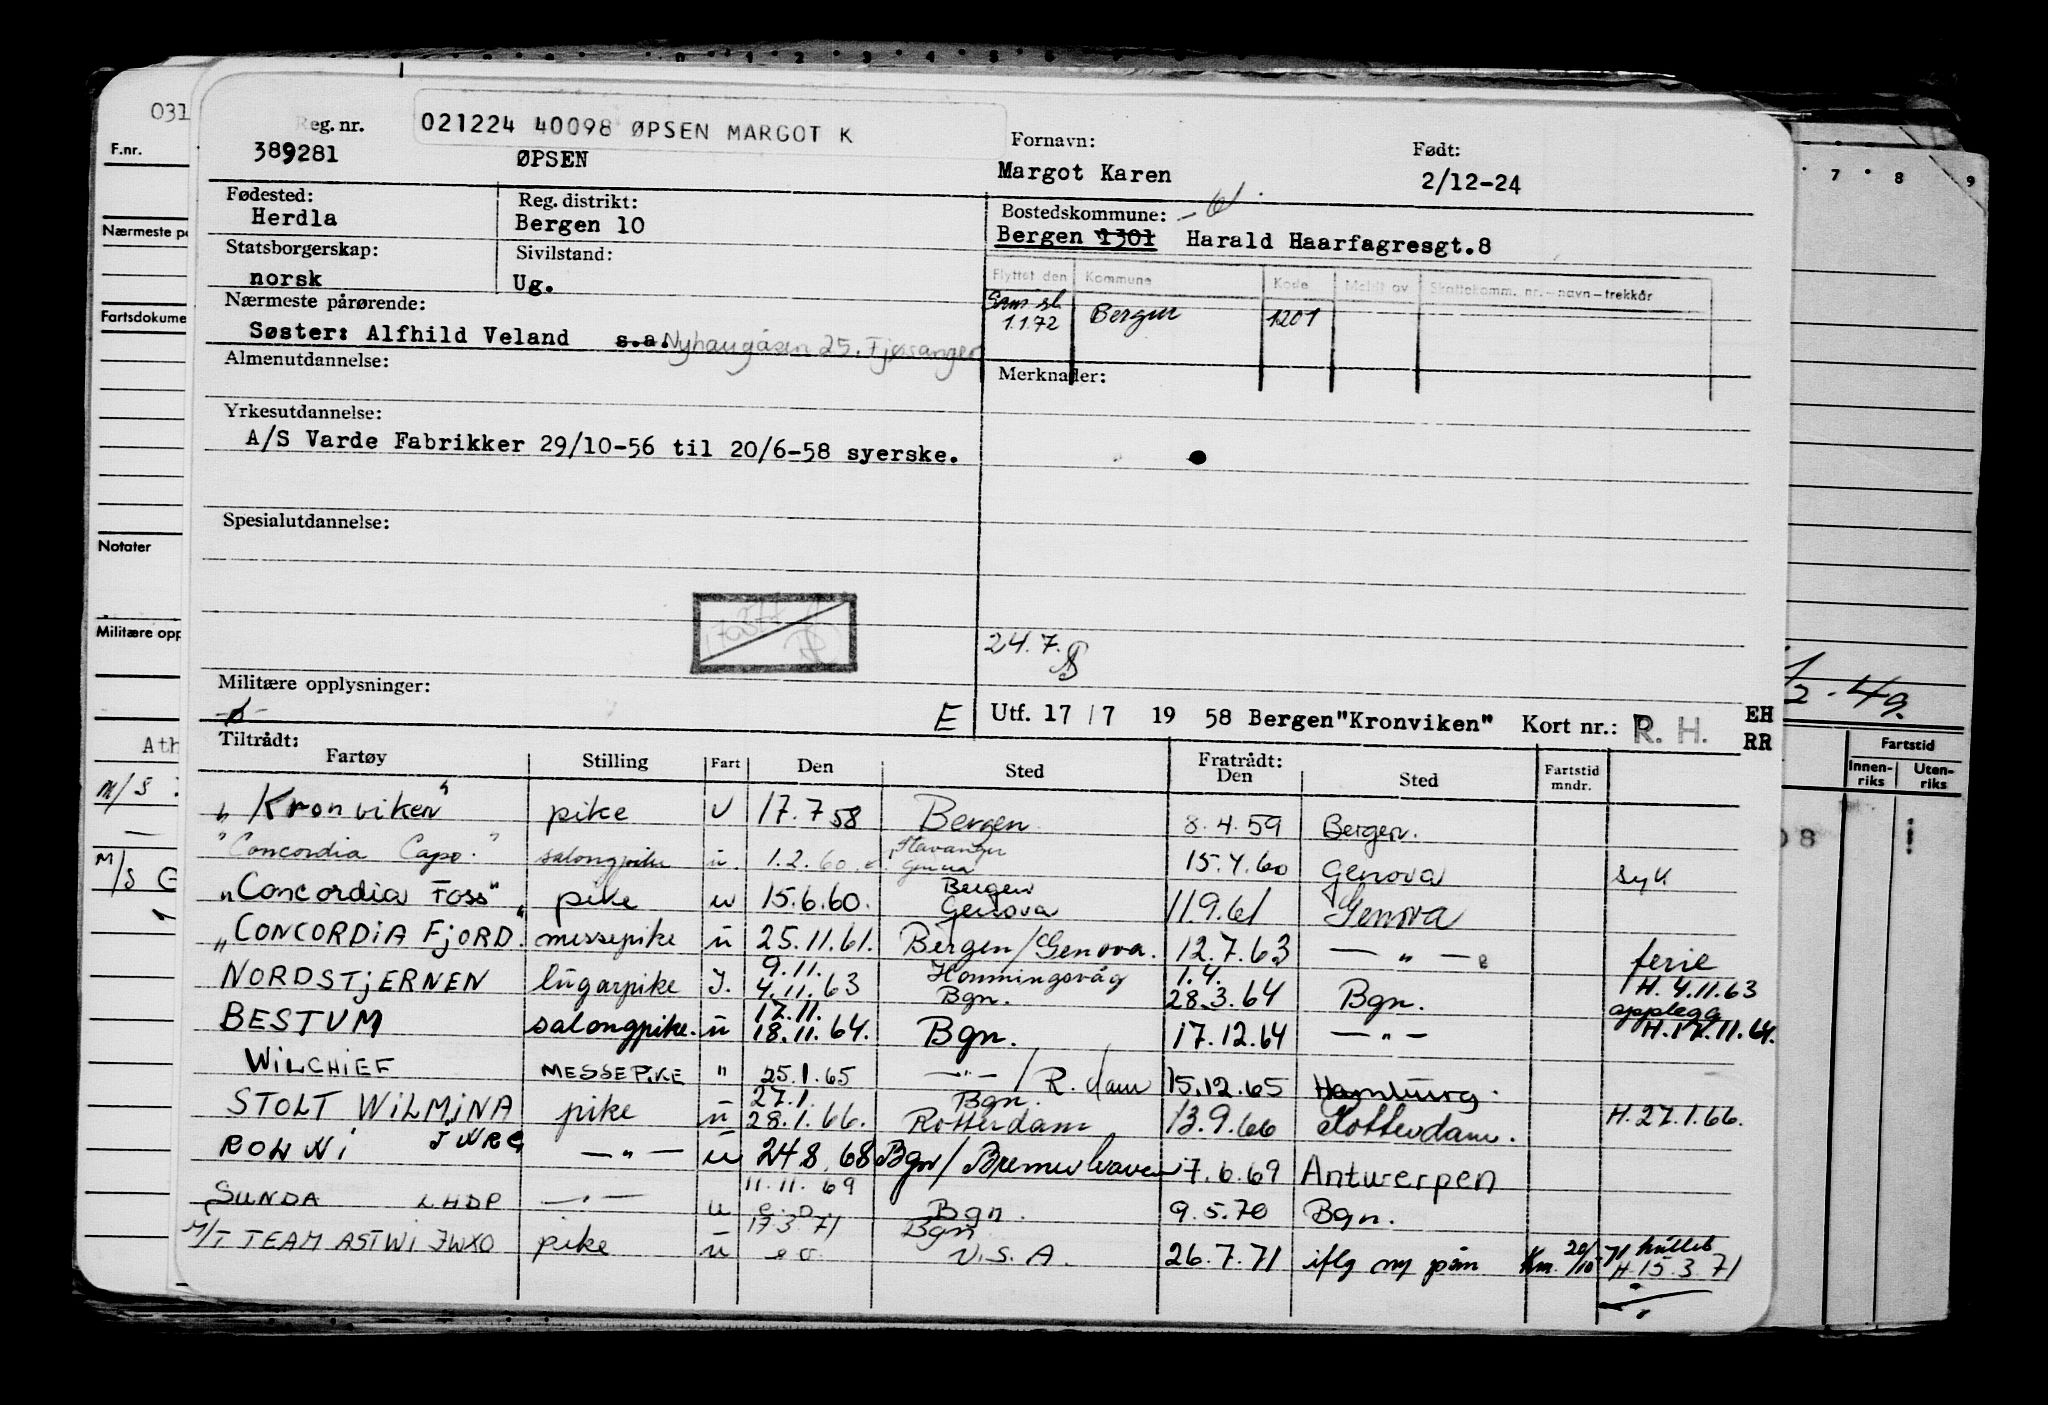 031
F.nr.
Nærmeste på
Fartsdokume
Notater
Militære opp
Ath
M/S
M/S G
Reg. nr. 021224 40098 ØPSEN MARGOT K Fornavn: Født:
389281 ØPSEN Margot Karen 2/12-24
Fødested: Reg. distrikt: Bostedskommune:
Herdla Bergen 10 Bergen 1301 Harald Haarfagresgt.8
Statsborgerskap: Sivilstand: Flyttet den Kommune Kode Meldt av Skattekomm. nr. – navn – trekkår
norsk Ug.
Nærmeste pårørende: 1.1.72 Bergen 1201
Søster: Alfhild Veland s.a. Nyhaugåsen 25. Fjøsanger
Almenutdannelse: Merknader:
Yrkesutdannelse:
A/S Varde Fabrikker 29/10-56 til 20/6-58 syerske.
Spesialutdannelse:
24.7.
Militære opplysninger:
E Utf. 17/7 19 58 Bergen "Kronviken" Kort nr.: R. H. EH
RR
Tiltrådt: Fratrådt:
Fartøy Stilling Fart Den Sted Den Sted Fartstid mndr.
"Kronviken" pike U 17.7 58 Bergen 8.4.59 Bergen.
"Concordia Capo." salongpike u. 1.2.60 Stavanger Genua 15.4.60 Genova syk
"Concordia Foss" pike u 15.6.60. Bergen Genova 11.9.61 Genova
"CONCORDIA FJORD" messepike u 25.11.61. Bergen/Genova. 12.7.63 — " — ferie
NORDSTJERNEN lugarpike I. 9.11. 4.11.63 Honningsvåg Bgn. 1.4. 28.3.64 Bgn. H. 4.11.63 opplegg
BESTUM salongpike. u 17.11. 18.11.64. Bgn. 17.12.64 — " — H. 17.11.64.
WILCHIEF MESSEPIKE " 25.1.65 — " — / R.dam 15.12.65 Hamburg.
STOLT WILMINA pike u 27.1. 28.1.66. Bgn. Rotterdam 13.9.66 Rotterdam. H. 27.1.66.
RONWI JWRG — " — u 24.8.68 Bgn/Bremerhaven 7.6.69 Antwerpen
SUNDA LHDP — " — u 11.11.69 Bgn. 9.5.70 Bgn.
M/T TEAM ASTWI JWXO pike u 17.3.71 Bgn U.S.A. 26.7.71 iflg ny påm Km. 20/10-71 H. 15.3.71
7 8 9
1/2 - 49.
Fartstid
Innenriks Utenriks
08